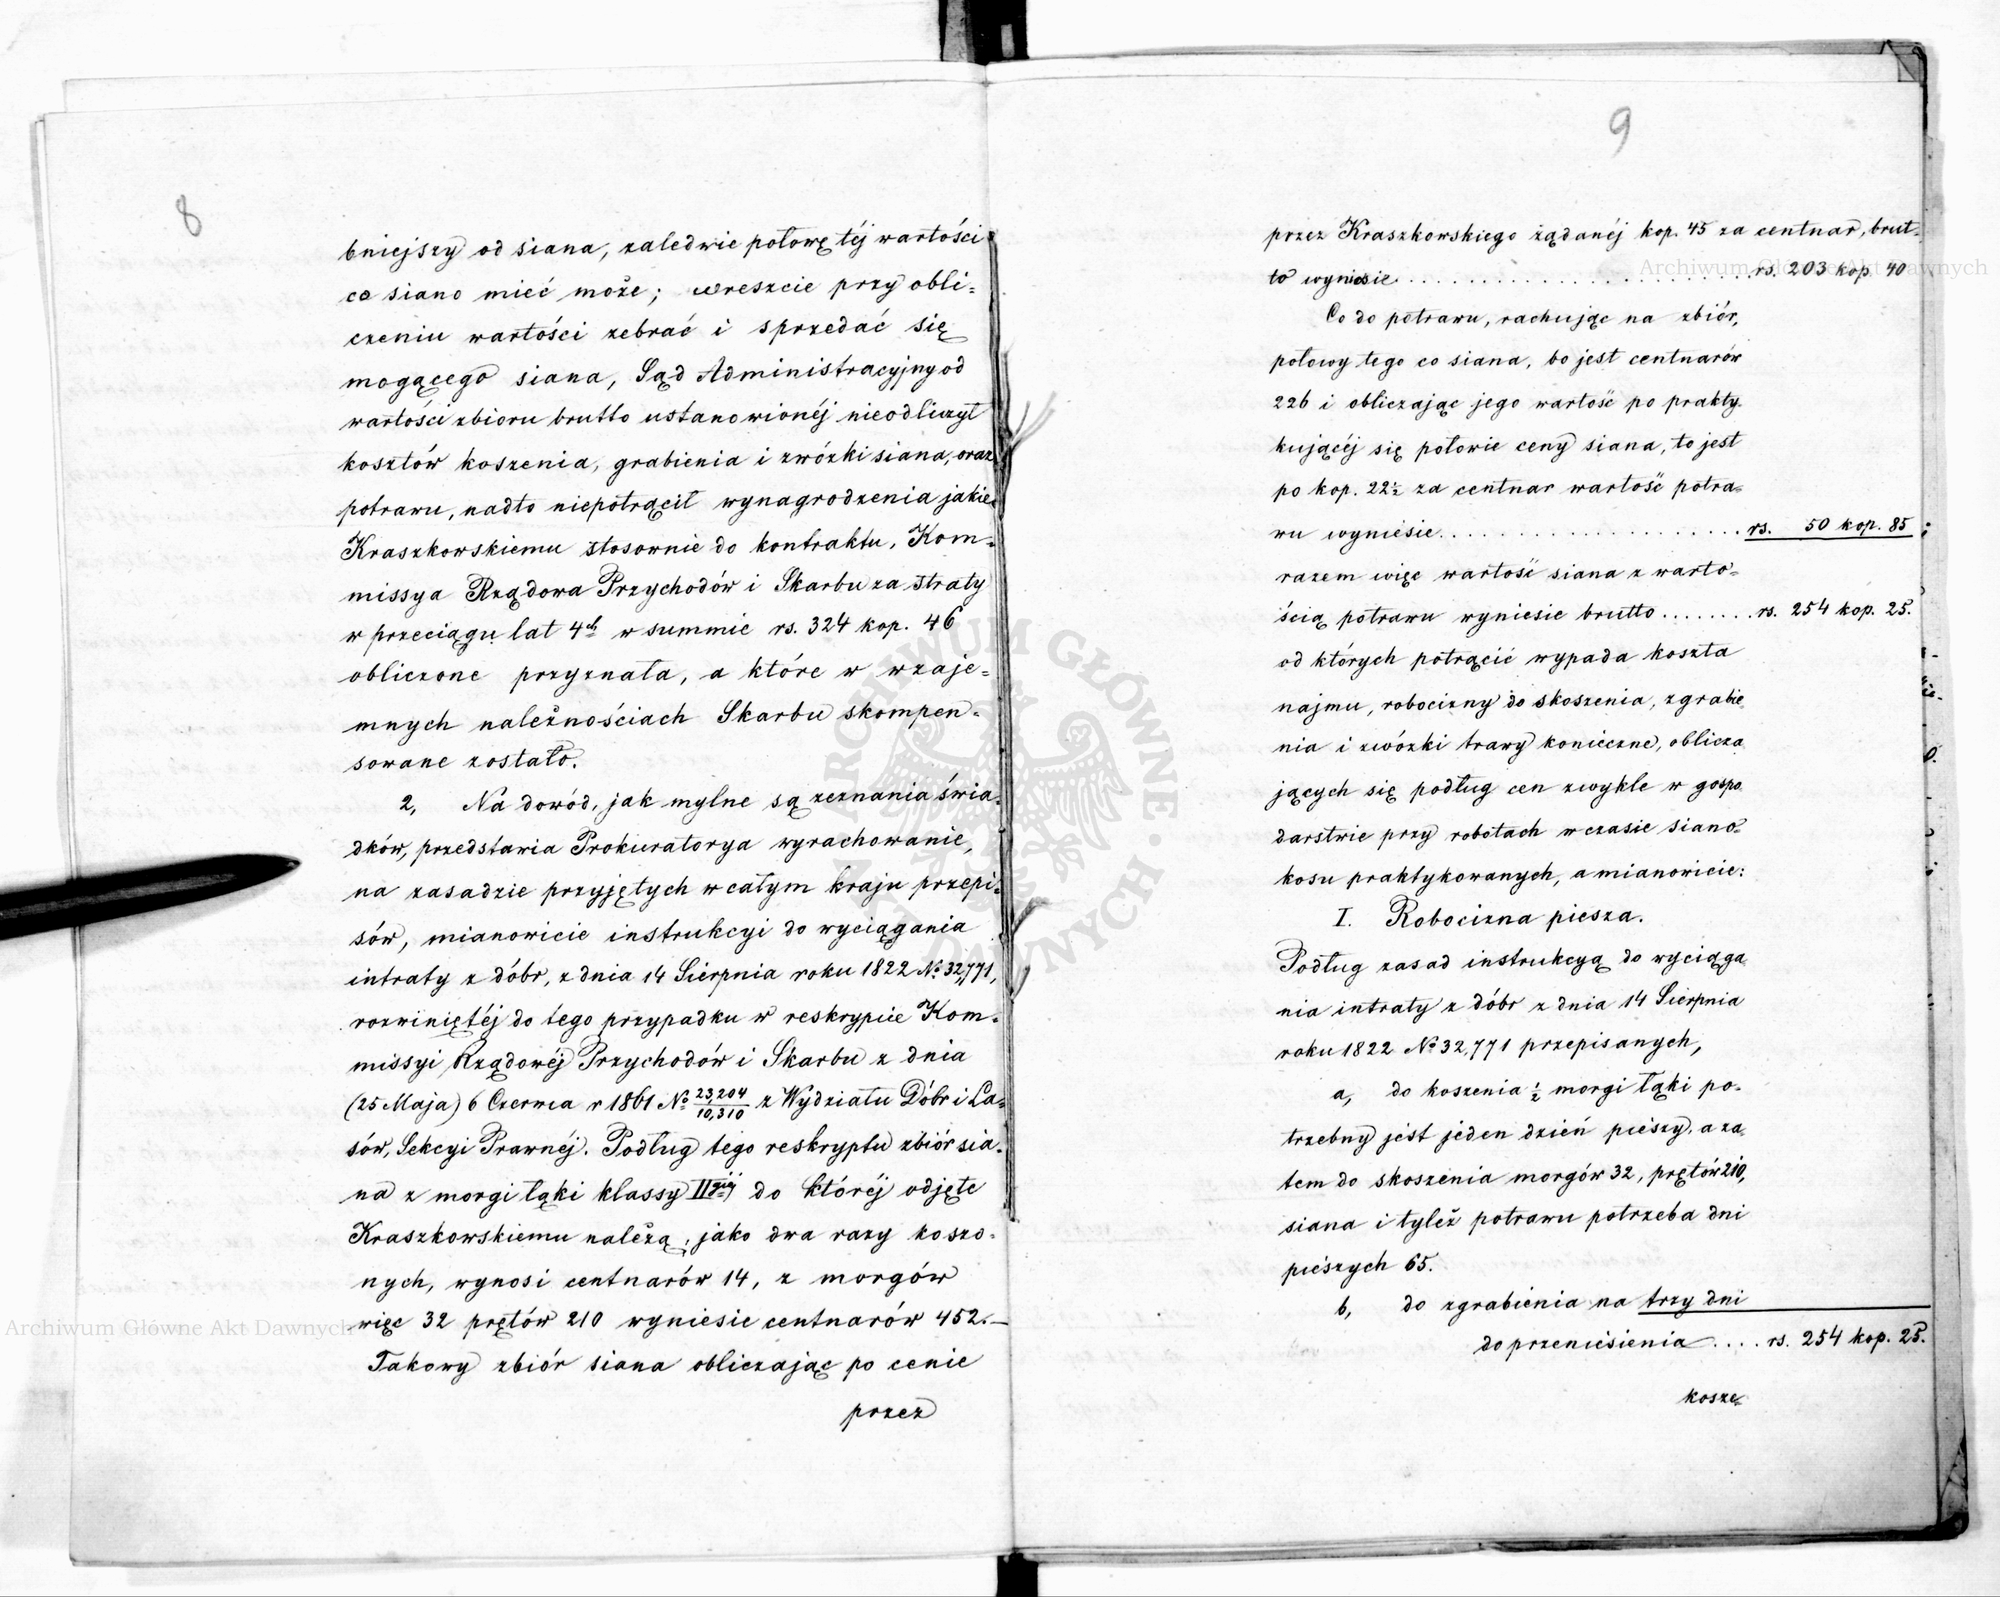 8
bniejszy od siana, zaledwie połowę téj wartości
co siano mieć może; wreszcie przy obli-
czeniu wartości zebrać i sprzedać się
mogącego siana, Sąd Administracyjny od
wartości zbioru brutto ustanowionéj nieodliczył
kosztów koszenia, grabienia i zwózki siana, oraz
potrawu, nadto niepotrącił wynagrodzenia jakie
Kraszkowskiemu stosownie do kontraktu, Kom-
missya Rządowa Przychodów i Skarbu za straty
w przeciągu lat 4ch w summie rs. 324 kop. 46
obliczone przyznała, a które w wzaje-
mnych należnościach Skarbu skompen-
sowane zostało.
2, Na dowód, jak mylne są zeznania świa-
dków, przedstawia Prokuratorya wyrachowanie,
na zasadzie przyjętych w całym kraju przepi-
sów, mianowicie instrukcyi do wyciągania
intraty z dóbr, z dnia 14 Sierpnia roku 1822 No 32,771,
rozwiniętéj do tego przypadku w reskrypcie Kom-
missyi Rządowéj Przychodów i Skarbu z dnia
(25 Maja) 6 Czerwca r 1861 No 23,204/10,310 z Wydziału Dóbr i La-
sów, Sekcyi Prawnéj. Podług tego reskryptu zbiór sia-
na z morgi łąki klassy IIgiéj do któréj odjęte
Kraszkowskiemu należą, jako dwa razy koszo-
nych, wynosi centnarów 14, z morgów
więc 32 prętów 210 wyniesie centnarów 452.—
Takowy zbiór siana obliczając po cenie
przez
9
przez Kraszkowskiego żądanéj kop. 45 za centnar, brut-
to wyniesie . . . . . . . . . . . . . . . . . . . . . . rs. 203 kop. 40
Co do potrawu, rachując na zbiór,
połowy tego co siana, bo jest centnarów
226 i obliczając jego wartość po prakty-
kującéj się połowie ceny siana, to jest
po kop. 22½ za centnar wartość potra-
wu wyniesie . . . . . . . . . . . . . . . . . . rs. 50 kop. 85
razem więc wartość siana z warto-
ścią potrawu wyniesie brutto . . . . . . . . rs. 254 kop. 25.
od których potrącić wypada koszta
najmu, robocizny do skoszenia, zgrabie-
nia i zwózki trawy konieczne, oblicza-
jących się podług cen zwykle w gospo-
darstwie przy robotach w czasie siano-
kosu praktykowanych, a mianowicie:
I. Robocizna piesza.
Podług zasad instrukcyą do wyciąga-
nia intraty z dóbr z dnia 14 Sierpnia
roku 1822 No 32,771 przepisanych,
a, do koszenia ½ morgi łąki po-
trzebny jest jeden dzień pieszy, a za-
tem do skoszenia morgów 32, prętów 210,
siana i tyleż potrawu potrzeba dni
pieszych 65.
b, do zgrabienia na trzy dni
do przeniesienia . . . . rs. 254 kop. 25.
kosze-
Archiwum Główne Akt Dawnych
Archiwum Główne Akt Dawnych